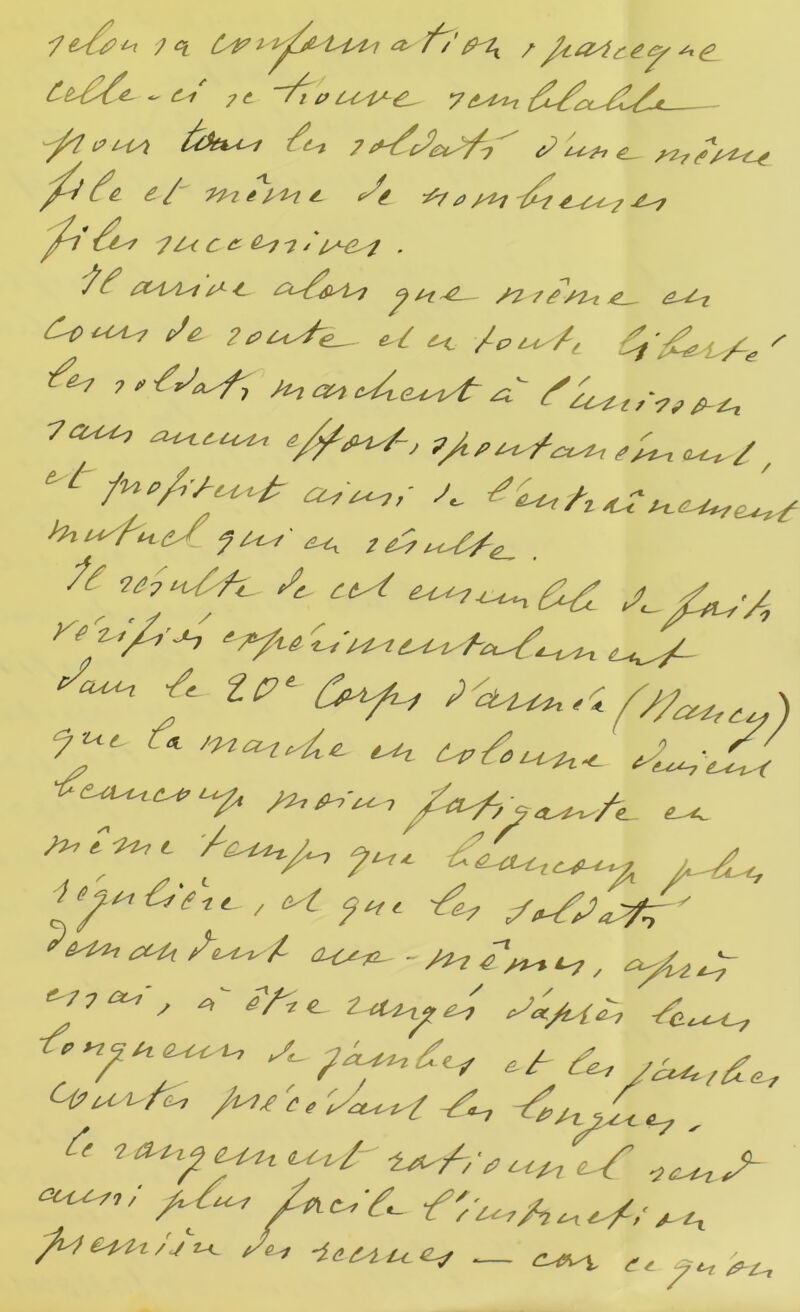 selon sa conformation, parceque
celle-ci se trouve semblable
pour tous les soldats d'une même
file et même de nombreuses
files successives.
Il arrive alors que même en
cours de route et en toute liberté
les soldats marchent à l'unisson
sans aucun effort, spontanément,
et profitent ainsi de l'entraînement
mutuel qui en résulte.
Il résulte de cet ensemble de faits
vérifiés expérimentalement
dans le 20e Corps d'armée (Nancy)
que la marche en colonne devient
beaucoup moins fatigante en
même temps que beaucoup plus
régulière, et que les soldats
demandent eux-mêmes, après
essai, à être rangés d'après leurs
longueurs de jambes et les jambes
courtes précédant les longues,
Ce rangement rationnel rend
aussi plus facile l'instruction
première des recrues — car ce qu'on